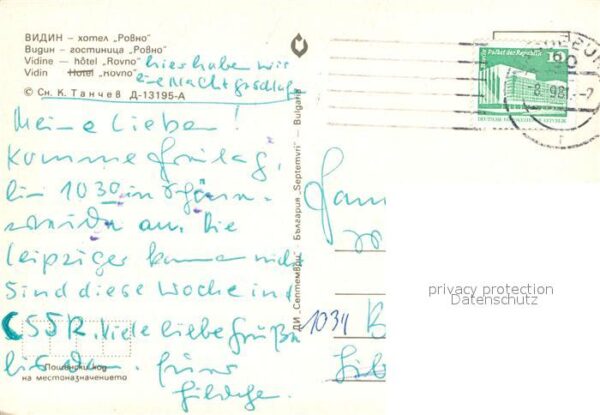 ВИДИН – хотел „Ровно“
Видин – гостиница „Ровно“
Vidine – hôtel „Rovno“
Vidin Hotel „Rovno“
hier haben wir
eine Nacht geschlafen
© Сн. К. Танчев Д-13195-А
Meine Lieben!
Komme Freitag,
bin 1030 in
an. Die
Leipziger kommen nicht
Sind diese Woche in d
ČSSR. Viele liebe Grüße
Eure
Пощенски код
на местоназначението
ДИ „Септември“ - България "Septemvri" – Bulgaria
Palast der Republik
10
DEUTSCHE DEMOKRATISCHE REPUBLIK
Fam
1034 B
privacy protection
Datenschutz